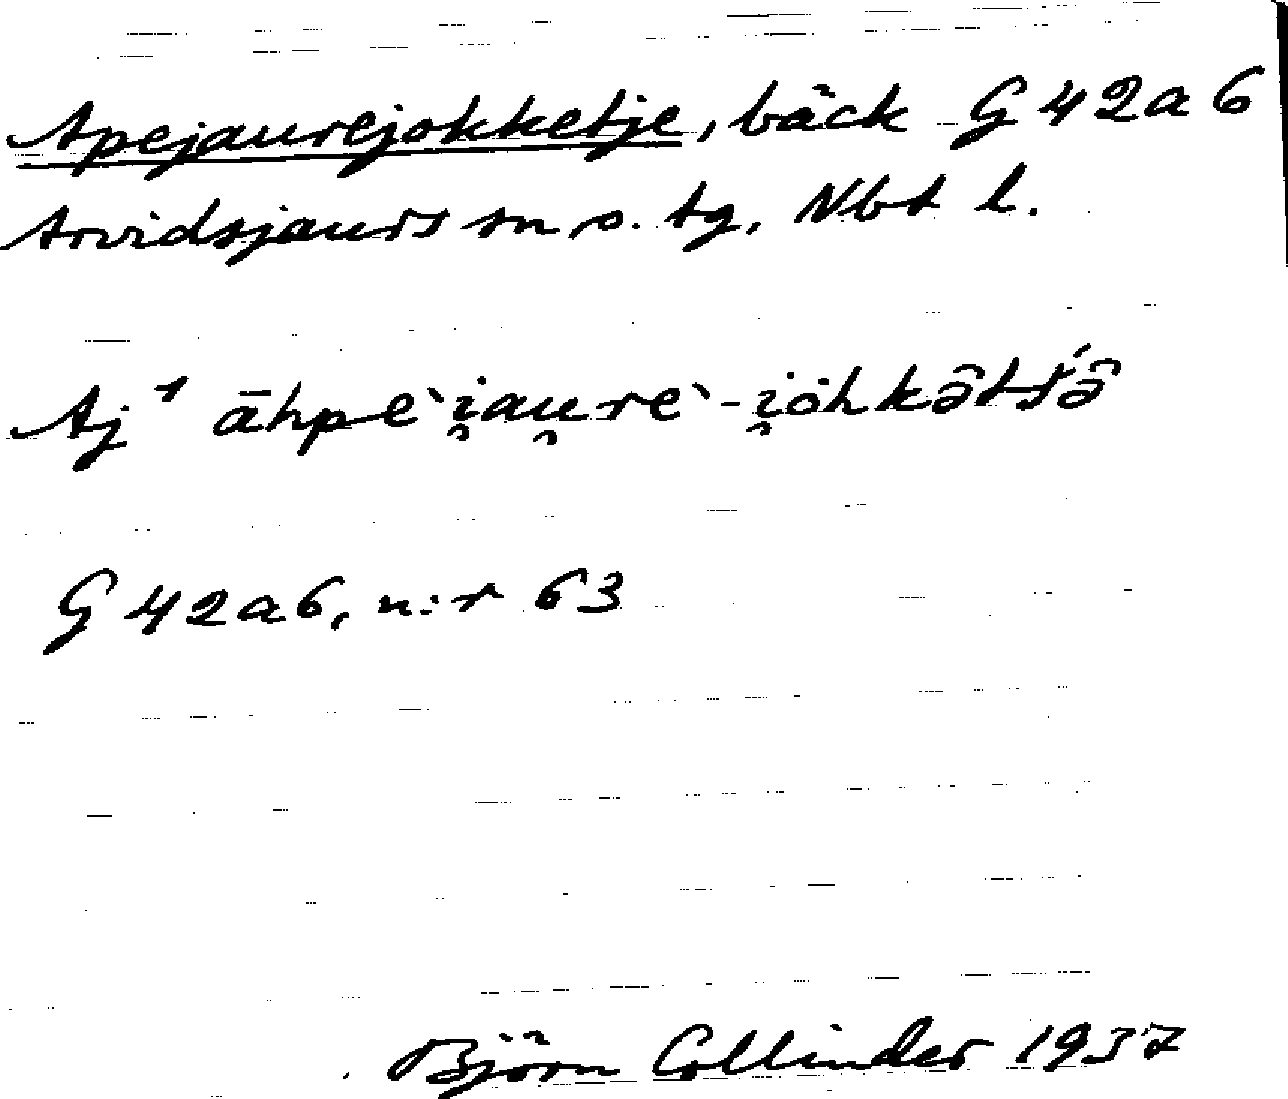 Apejaurejokketje, bäck G 42a6
Arvidsjaurs sn o. tg, Nbt l.
Aj 1 āhpe`i̯au̯re`-i̯öhkə̂tśə̂
G 42a6, n:r 63
Björn Collinder 1937